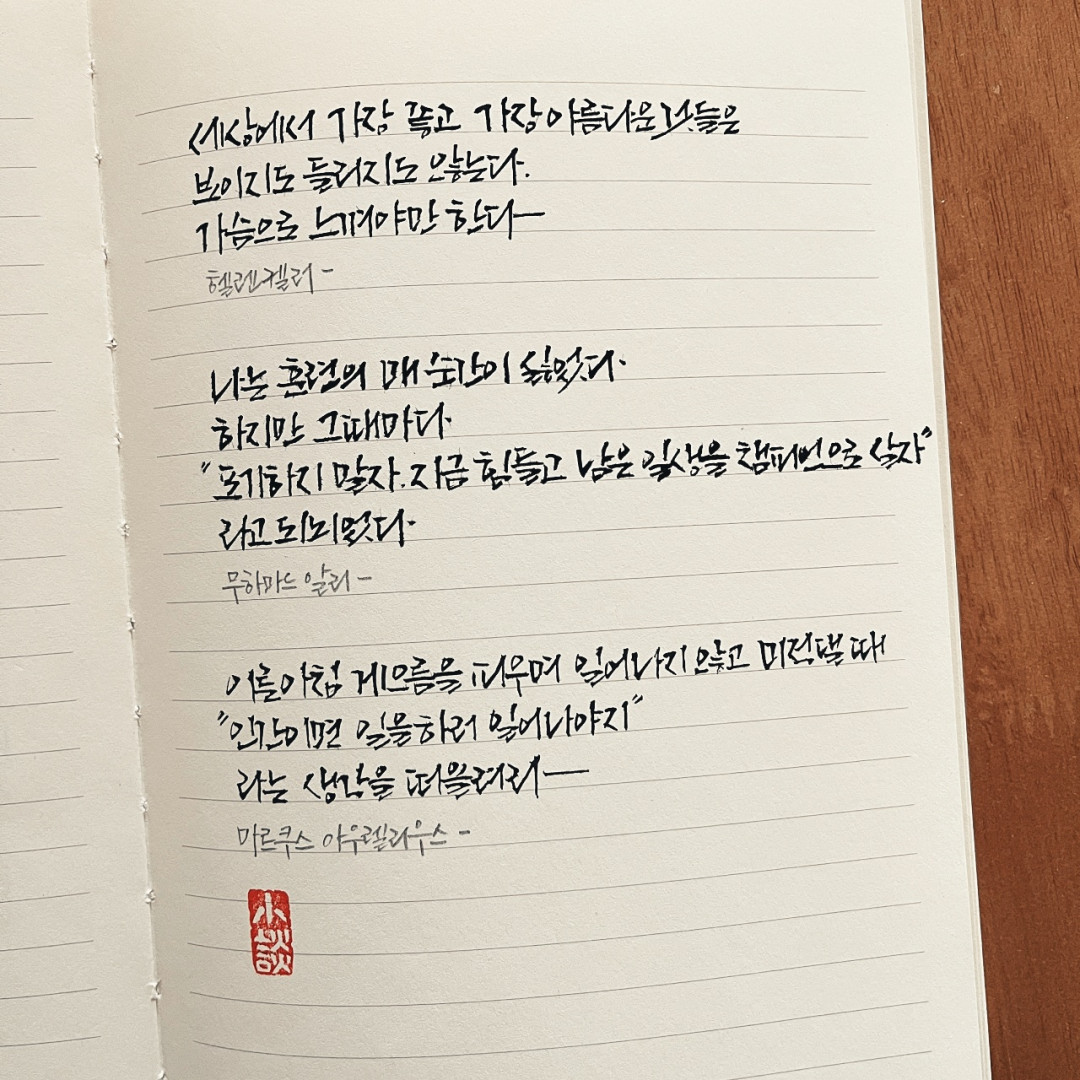 세상에서 가장 좋고 가장 아름다운 것들은
보이지도 들리지도 않는다.
가슴으로 느껴야만 한다—
헬렌켈러 -
나는 훈련의 매 순간이 싫었다.
하지만 그때마다.
"포기하지 말자. 지금 힘들고 남은 일생을 챔피언으로 살자"
라고 되뇌었다.
무하마드 알리 -
이른아침 게으름을 피우며 일어나지 않고 미적댈 때
"인간이면 일을하러 일어나야지"
라는 생각을 떠올려라—
마르쿠스 아우렐리우스 -
小
談